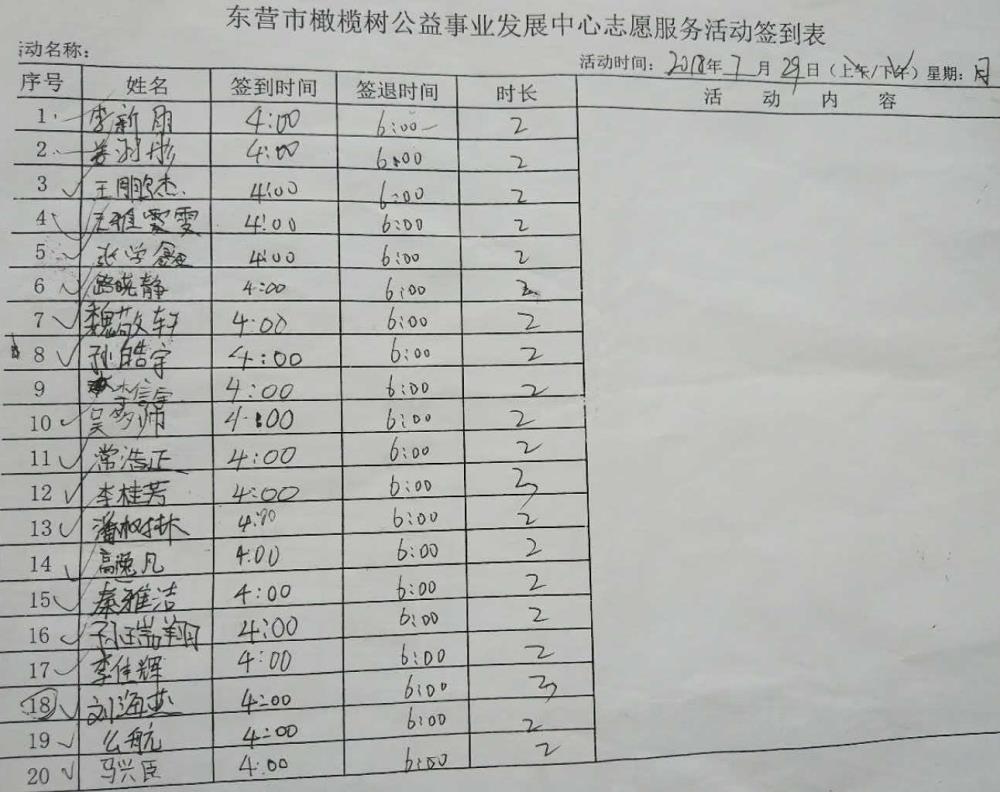 东营市橄榄树公益事业发展中心志愿服务活动签到表
活动名称：
活动时间：2018年7月29日（上午/下午）星期：日
序号 姓名 签到时间 签退时间 时长 活动内容
1 李新雨 4:00 6:00 2
2 4:00 6:00 2
3 王鹏杰 4:00 6:00 2
4 4:00 6:00 2
5 张学鑫 4:00 6:00 2
6 路晓静 4:00 6:00 2
7 魏敬轩 4:00 6:00 2
8 孙皓宇 4:00 6:00 2
9 李信宇 4:00 6:00 2
10 吴多帅 4:00 6:00 2
11 常浩正 4:00 6:00 2
12 李桂芳 4:00 6:00 3
13 潘树林 4:00 6:00 2
14 高逸凡 4:00 6:00 2
15 秦雅洁 4:00 6:00 2
16 孙瑞翔 4:00 6:00 2
17 李佳辉 4:00 6:00 2
18 刘海燕 4:00 6:00 3
19 么航 4:00 6:00 2
20 马兴臣 4:00 6:00 2